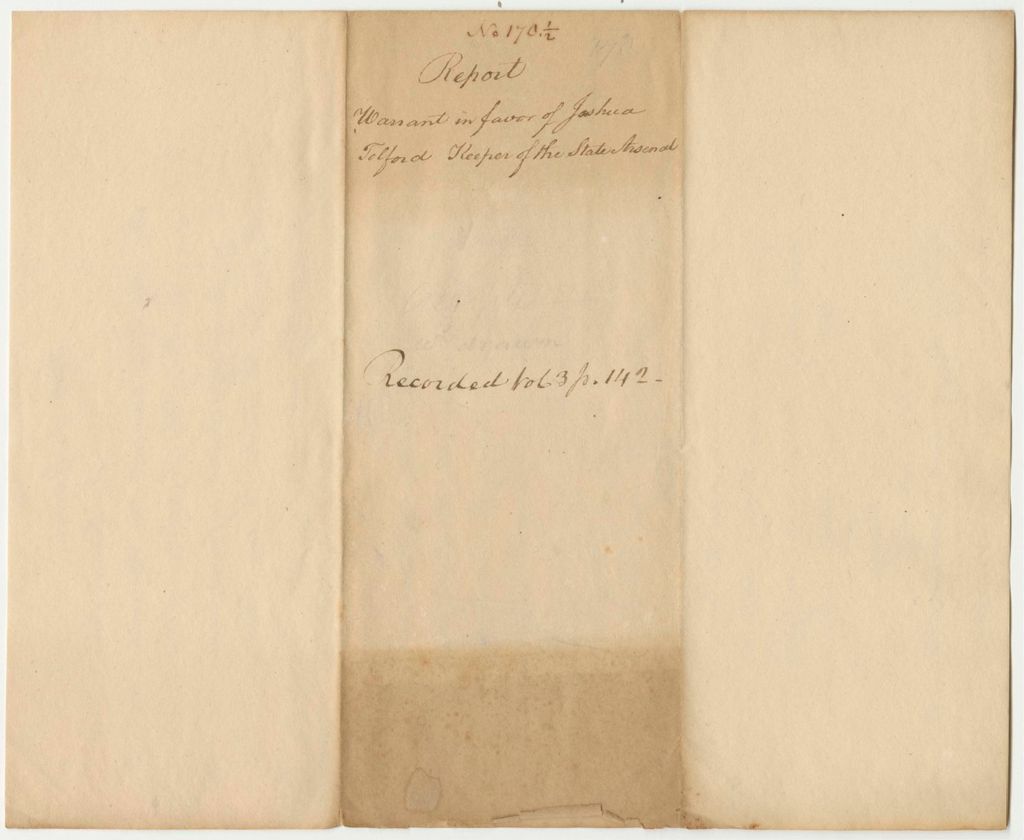 No 170 1/2
Report
Warrant in favor of Joshua
Tolford Keeper of the State Arsenal
Recorded Vol 3 p. 142 -